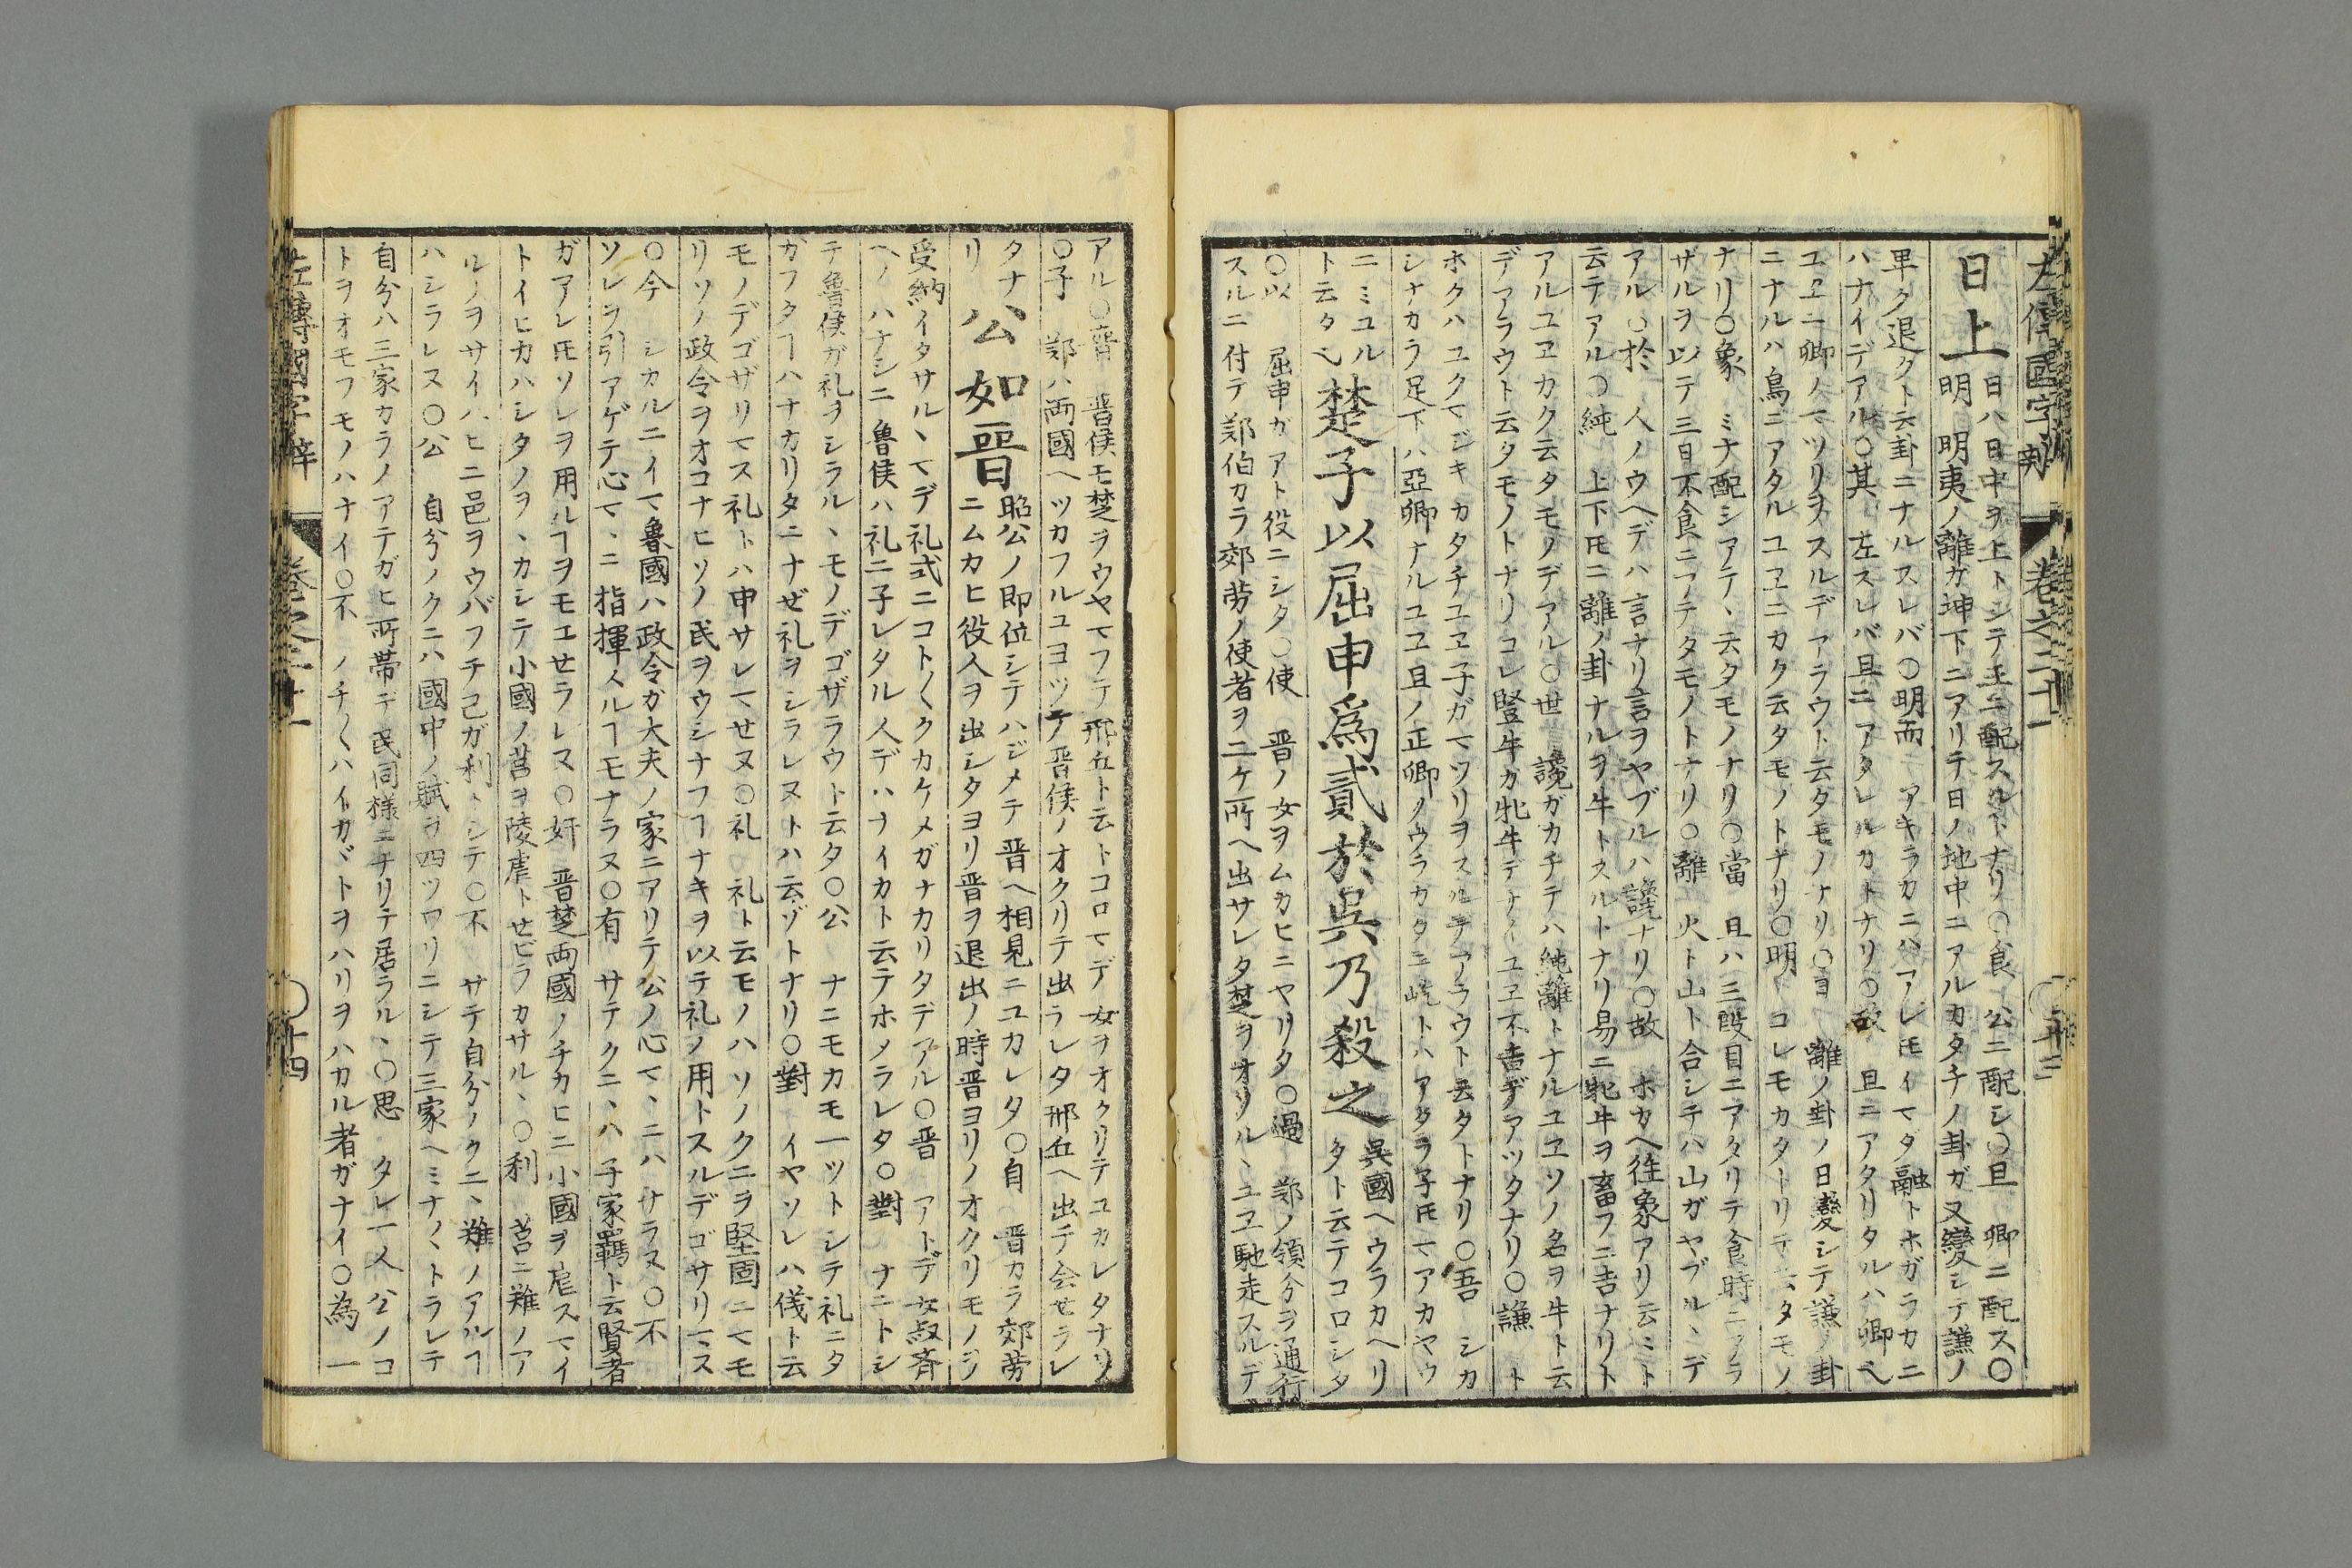 左傳國字辯 卷之二十一
日上
日ハ日中ヲ上トシテ王ニ配スルトナリ○食 公ニ配シ○旦 卿ニ配ス○
明 明夷ノ離ガ坤下ニアリテ日ノ地中ニアルカタチノ卦ガ又變シテ謙ノ
卑ク退クト云卦ニナルスレバ○明而 アキラカニハアレ𪜈イマダ融トホガラカニ
ハナイデアル○其 左スレバ旦ニアタルカトナリ○故 旦ニアタリタルハ卿ヘ
ユヱニ卿ノマツリヲスルデアラウト云タモノナリ○日 離ノ卦ノ日變シテ謙ノ卦
ニナルハ鳥ニアタルユヱニカク云タモノトナリ○明 コレモカタトリテ云タモノ
ナリ○象 ミナ配シアテヽ云タモノナリ○當 旦ハ三段目ニアタリテ食時ニアラ
ザルヲ以テ三日不食ニアテタモノトナリ○離 火ト山ト合シテハ山ガヤブルヽデ
アル○於 人ノウヘデハ言ナリ言ヲヤブルハ讒ナリ○故 ホカヘ徃象アリ云ミト
云テアル○純 上下𪜈ニ離ノ卦ナルヲ牛トスルトナリ易ニ牝牛ヲ畜フニ吉ナリト
アルユヱカク云タモノデアル○世 讒ガカチテハ純離トナルユヱソノ名ヲ牛ト云
デアラウト云タモノトナリコレ竪牛ガ牝牛デナイユヱ不吉デアツタナリ○謙 ト
ホクハユクマジキカタチユヱ子ガマツリヲスルデアラウト云タトナリ○吾 シカ
シナカラ足下ハ亞卿ナルユヱ旦ノ正卿ノウラカタニ屹トハアタラ子𪜈マアカヤウ
ニミユル
ト云タヘ
楚子以屈申爲貳於吳乃殺之
吳國ヘウラカヘリ
タト云テコロシタ
○以 屈申ガアト役ニシタ○使 晋ノ女ヲムカヒニヤリタ○過 郑ノ領分ヲ通行
スルニ付テ郑伯カラ郊劳ノ使者ヲ二ケ所ヘ出サレタ楚ヲオソルヽユヱ馳走スルデ
アル○齊 晋侯モ楚ヲウヤマフテ邢丘ト云トコロマデ女ヲオクリテユカレタナリ
○子 郑ハ両國ヘツカフルユヨツテ晋侯ノオクリテ出ラレタ邢丘ヘ出テ会セラレ
タナ
リ
公如晋
昭公ノ即位シテハジメテ晋ヘ相見ニユカレタ○自 晋カラ郊劳
ニムカヒ役人ヲ出シタヨリ晋ヲ退出ノ時晋ヨリノオクリモノヲ
受納イタサルヽマデ礼式ニコト〱クカケメガナカリタデアル○晋 アトデ女叔斉
ヘノハナシニ魯侯ハ礼ニ子レタル人デハナイカト云テホメラレタ○對 ナニトシ
テ魯侯ガ礼ヲシラルヽモノデゴザラウト云タ○公 ナニモカモ一ツトシテ礼ニタ
ガフタヿハナカリタニナゼ礼ヲシラレヌトハ云ゾトナリ○對 イヤソレハ儀ト云
モノデゴザリマス礼トハ申サレマせヌ○礼 礼ト云モノハソノクニヲ堅固ニマモ
リソノ政令ヲオコナヒソノ民ヲウシナフヿナキヲ以テ礼ノ用トスルデゴサリマス
○今 シカルニイマ魯國ハ政令ガ大夫ノ家ニアリテ公ノ心マヽニハサラヌ○不
ソレヲ引アゲテ心マヽニ指揮スルヿモナラヌ○有 サテクニヽハ子家羈ト云賢者
ガアレ𪜈ソレヲ用ルヿヲモエせラレヌ○奸 晋楚両國ノチカヒニ小國ヲ虐スマイ
トイヒカハシタノヲヽカシテ小國ノ莒ヲ陵虐トせビラカサルヽ○利 莒ニ難ノア
ルノヲサイハヒニ邑ヲウバフテ己ガ利ヽシテ○不 サテ自分ノクニヽ難ノアルヿ
ハシラレヌ○公 自分ノクニハ國中ノ賦ヲ四ツワリニシテ三家ヘミナ〱トラレテ
自分ハ三家カラノアテガヒ所帯デ民同様ニナリテ居ラルヽ○思 タレ一人公ノコ
トヲオモフモノハナイ○不 ノチ〱ハイカヾトヲハリヲハカル者ガナイ○為 一
左傳國字辯 卷之二十一 ○十四